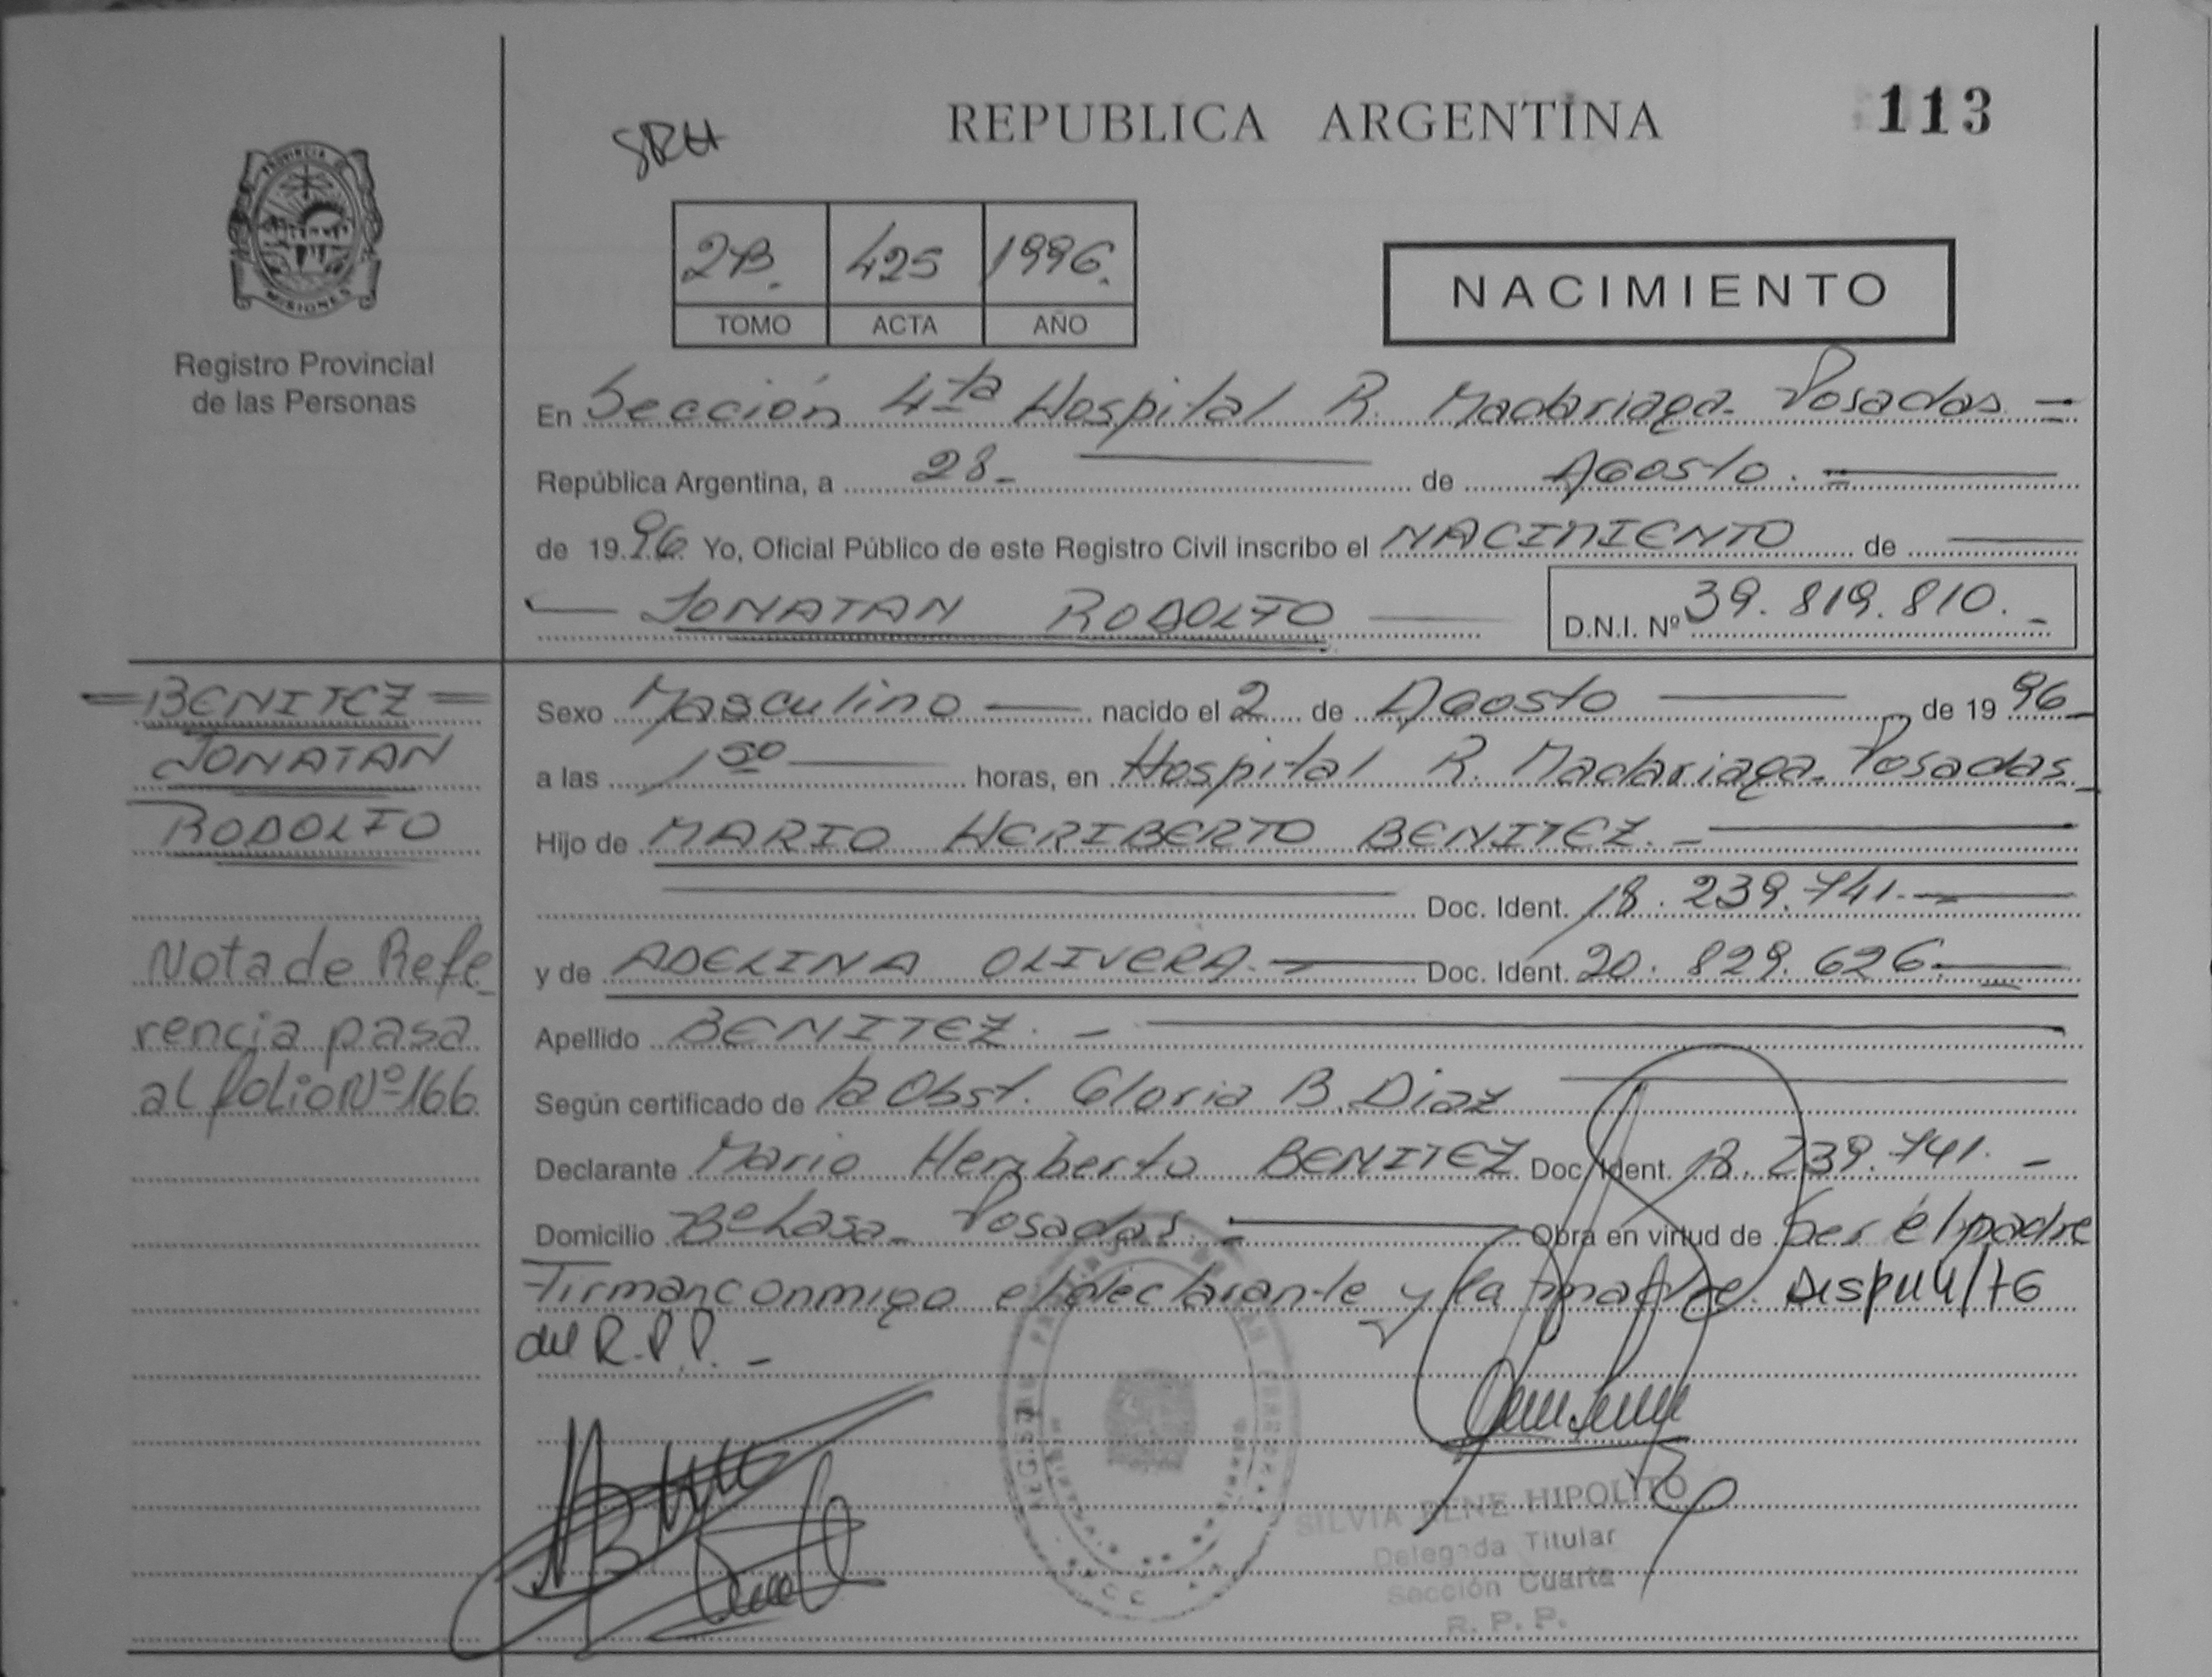 REPUBLICA ARGENTINA
113
SRH
2B. 425 1996.
TOMO ACTA AÑO
NACIMIENTO
PROVINCIA DE
MISIONES
Registro Provincial
de las Personas
En Sección 4ta Hospital R. Madariaga. Posadas
República Argentina, a 28 de Agosto.
de 1996 Yo, Oficial Público de este Registro Civil inscribo el NACIMIENTO de
JONATAN RODOLFO
D.N.I. Nº 39.819.810.
BENITEZ
JONATAN
RODOLFO
Nota de Refe
rencia pasa
al folio Nº 166
Sexo Masculino nacido el 2 de Agosto de 1996
a las 1 50 horas, en Hospital R. Madariaga. Posadas
Hijo de MARIO HERIBERTO BENITEZ.
Doc. Ident. 18.239.741.
y de ADELINA OLIVERA. Doc. Ident. 20.829.626.
Apellido BENITEZ.
Según certificado de la Obst. Gloria B. Diaz
Declarante Mario Heriberto BENITEZ Doc. Ident. 18.239.741.
Domicilio Bº Lasa. Posadas. Obra en virtud de ser el padre
Firman conmigo el declarante y la madre. Disp 44/76
del R.P.P.
SILVIA RENE HIPOLITO
Delegada Titular
Sección Cuarta
R. P. P.